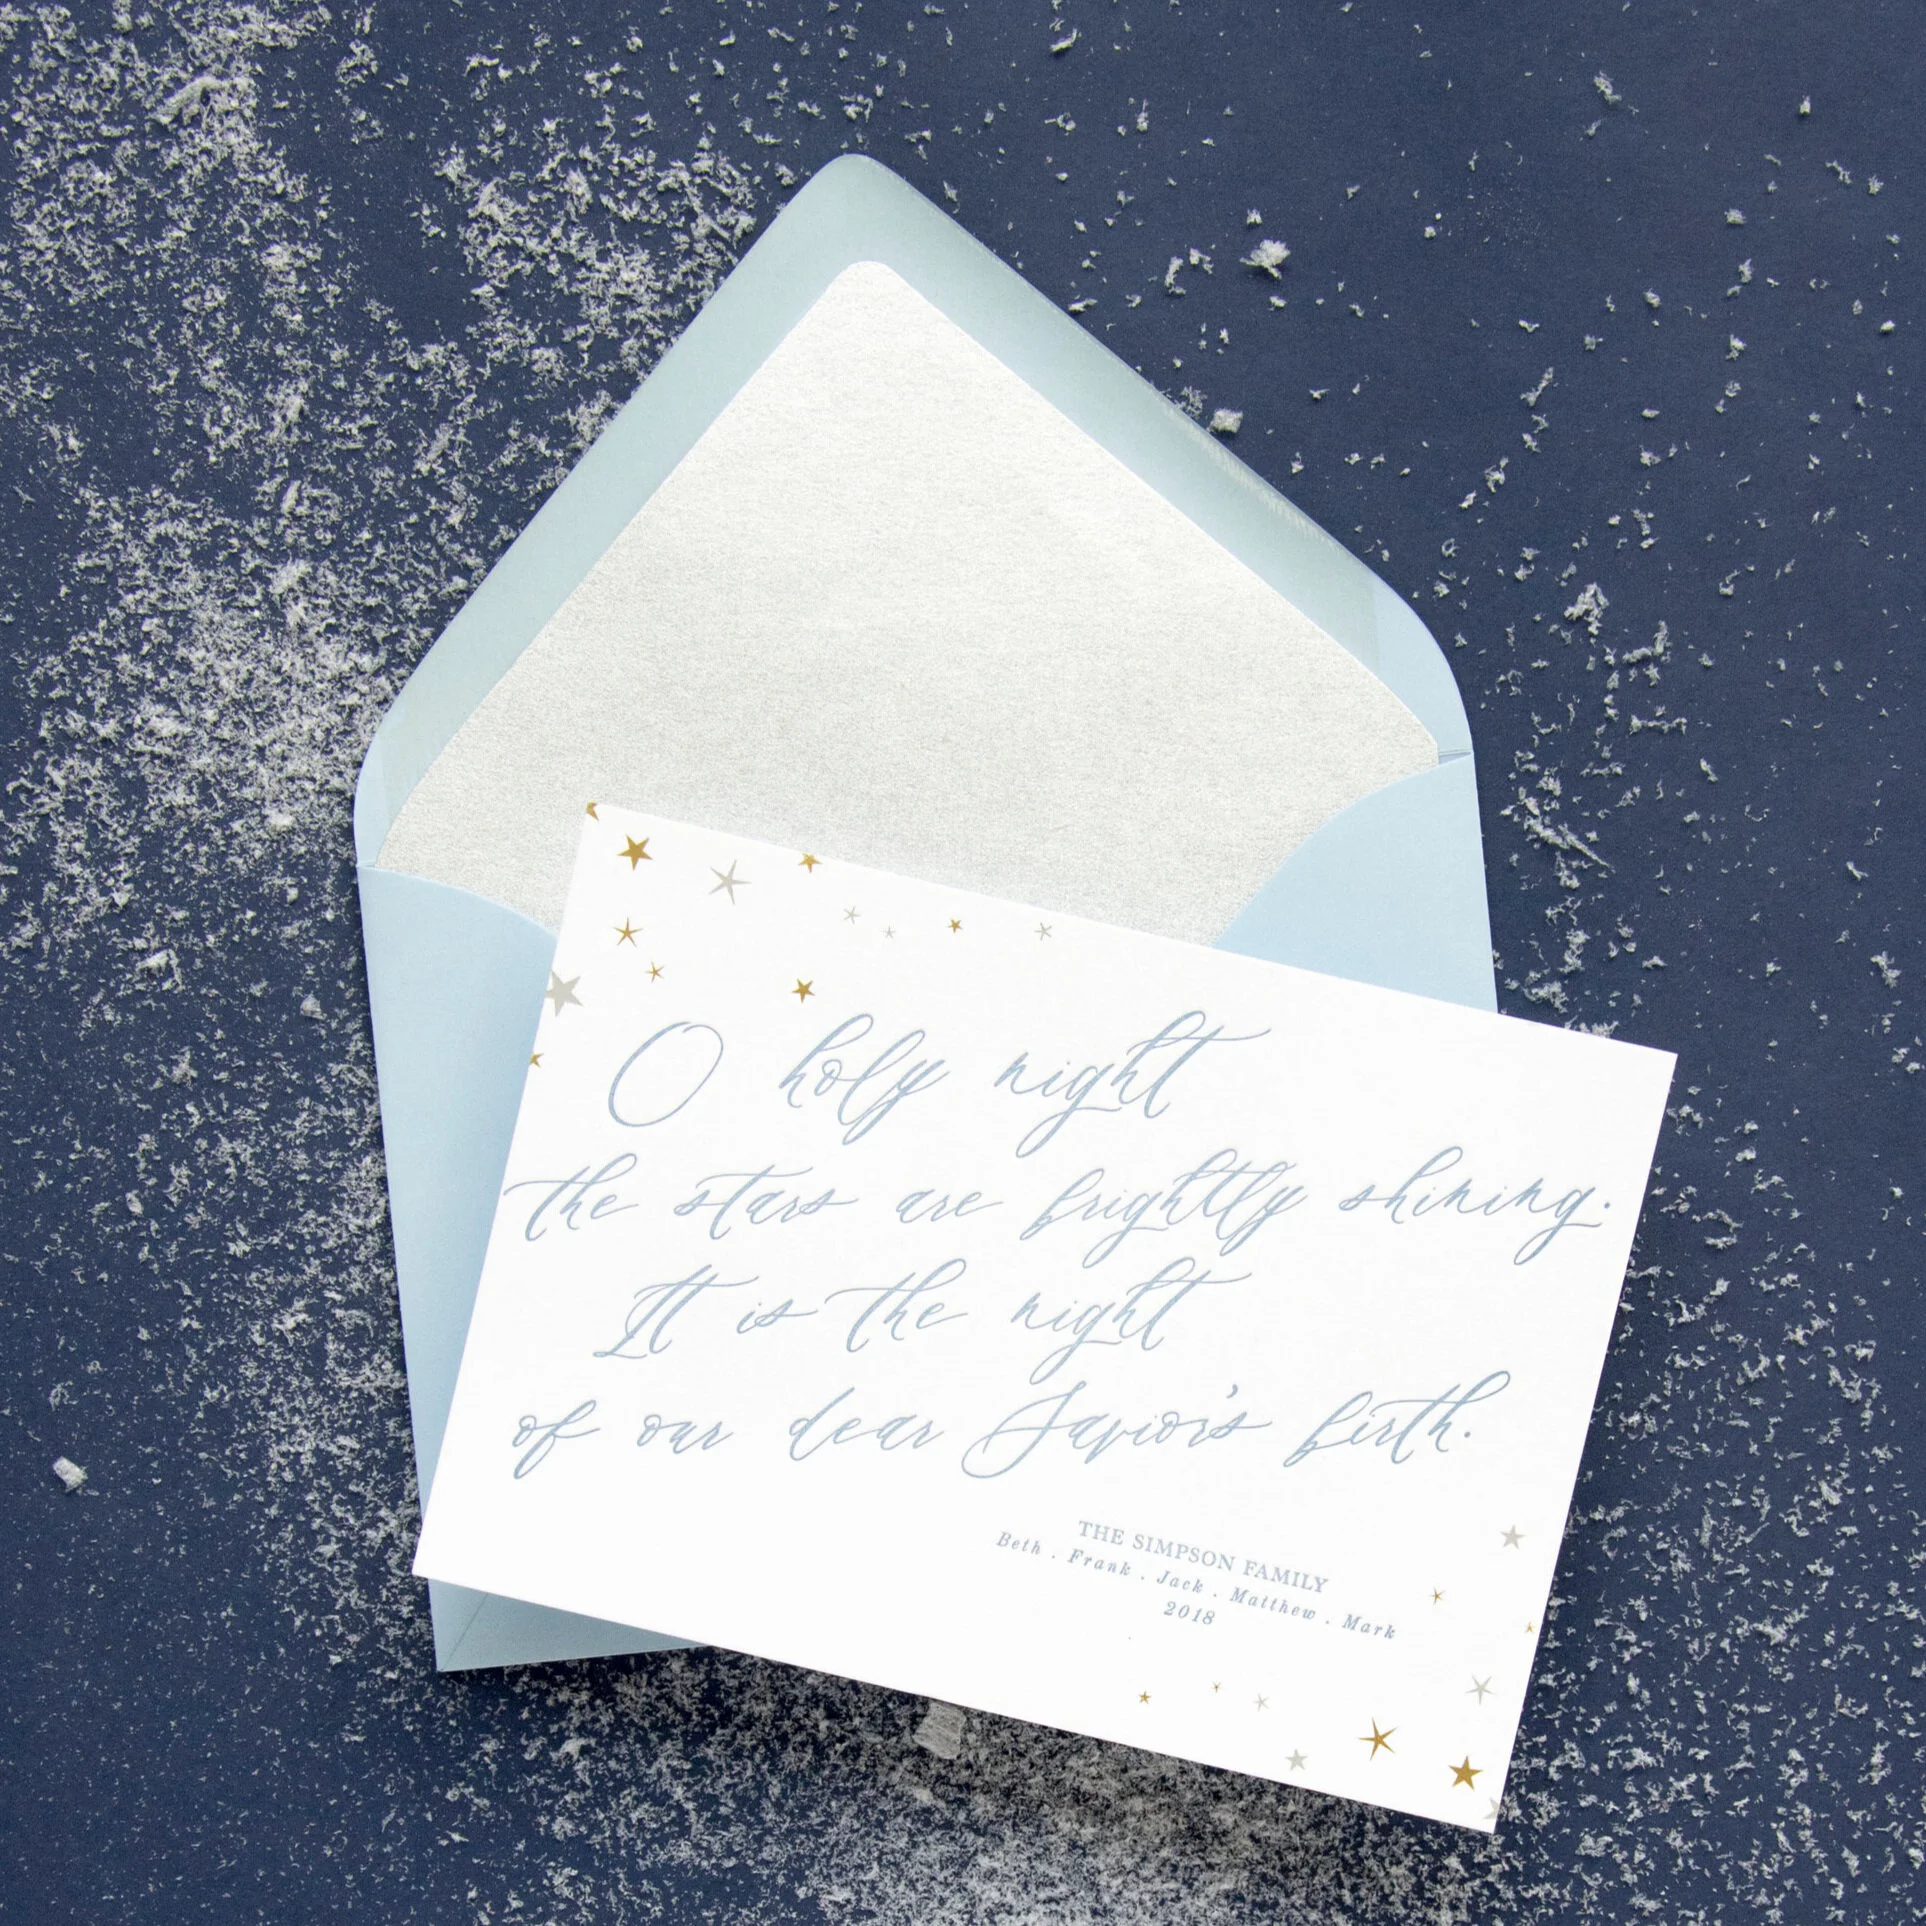 O holy night
the stars are brightly shining.
It is the night
of our dear Savior's birth.
THE SIMPSON FAMILY
Beth . Frank . Jack . Matthew . Mark
2018